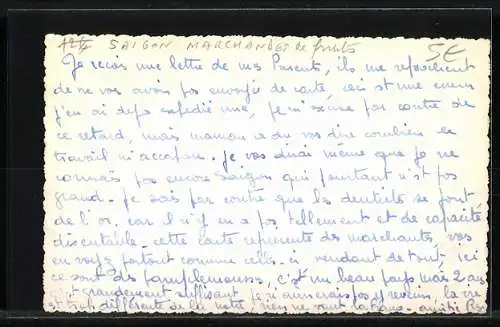 SAIGON MARCHANDES de fruits 5€
Je reçois une lettre de mes Parents, ils me reprochent
de ne vous avoir pas envoyé de carte, ceci est une erreur
j'en ai déjà expédié une, je m'excuse par contre de
ce retard, mais maman a du vous dire combien le
travail m'accapare. Je vous dirai même que je ne
connais pas encore Saigon qui pourtant n'est pas
grand. Je sais par contre que les dentiers se font
de l'or, car il n'y en a pas tellement et de capacité
discutable. cette carte represente des marchants, vous
en voyez partout comme celles-ci vendant de tout, ici
ce sont des pamplemousses, c'est un beau pays mais 2 ans
est grandement suffisant je n'aimerais pas y revenir, la vie
est très différente de la notre, rien ne vaut la France